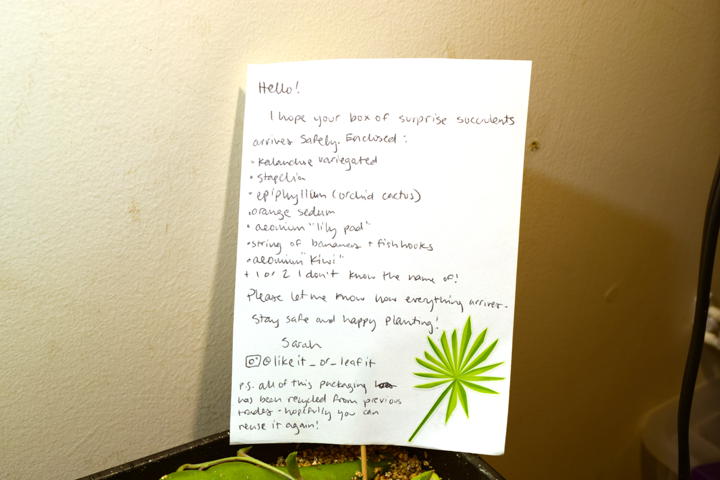 Hello!
I hope your box of surprise succulents
arrives safely. Enclosed:
• kalanchoe variegated
• stapelia
• epiphyllum (orchid cactus)
• orange sedum
• aeonium "lily pad"
• string of bananas + fishhooks
• aeonium "kiwi"
+ 1 or 2 I don't know the name of!
Please let me know how everything arrives.
Stay safe and happy planting!
Sarah
@likeit_or_leafit
p.s. all of this packaging
has been recycled from previous
trades - hopefully you can
reuse it again!